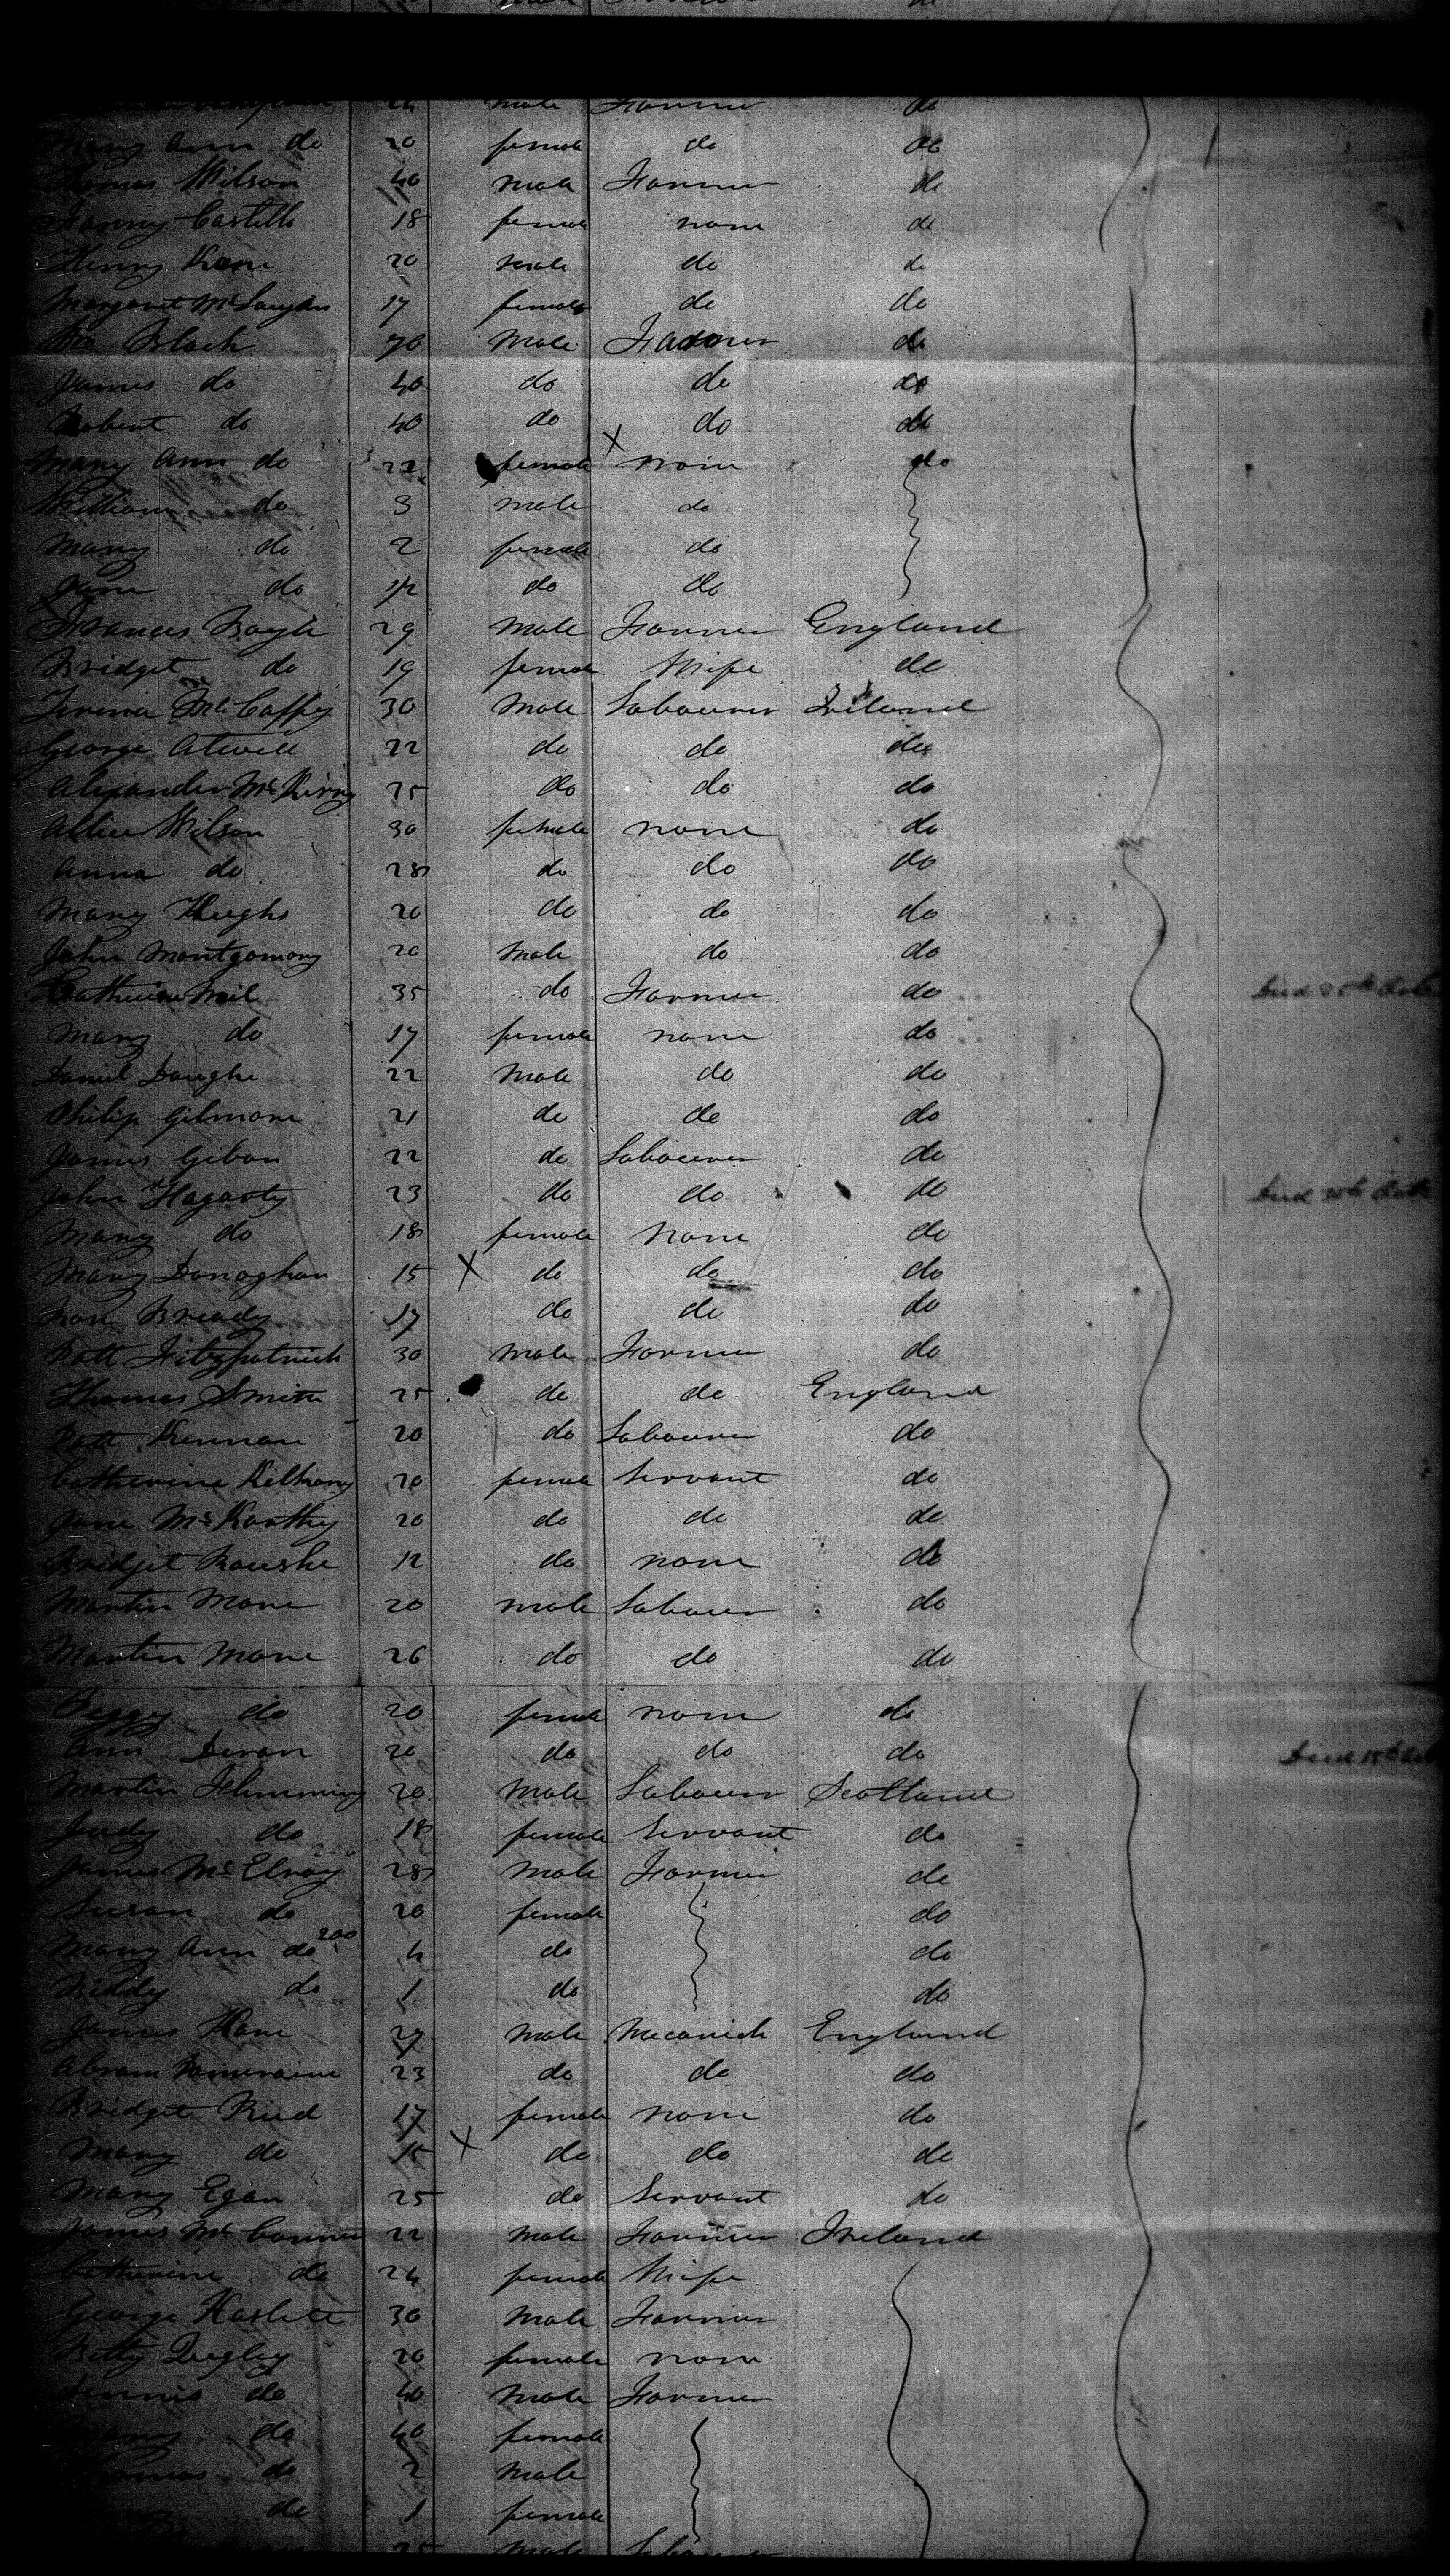 male Farmer do
Mary Ann do 20 female do do
Thomas Wilson 40 male Farmer do
Fanny Castello 18 female none do
Henry Kane 20 male do do
Margaret 17 female do do
Black 70 male Farmer do
James do 40 do do do
Robert do 40 do do do
Mary Ann do 22 female X none do
William do 3 male do
Mary do 2 female do
Jane do 1/2 do do
Frances Boyle 29 male Farmer England
Bridget do 19 female Wife do
McCaffy 30 male Labourer Ireland
George Atwell 22 do do do
Alexander 25 do do do
Allice Wilson 30 female none do
Anna do 28 do do do
Mary Hughs 20 do do do
John Montgomory 20 male do do
35 do Farmer do died
Mary do 17 female none do
Daniel 22 male do do
Philip Gilmore 21 do do do
James Gibon 22 do Labourer do
John Hagarty 23 do do do died
Mary do 18 female none do
Mary Donoghan 15 X do do do
Rose Bready 17 do do do
Patt Fitzpatrick 30 male Farmer do
Thomas Smith 25 do do England
Patt Kennan 20 do Labourer do
Catherine 20 female Servant do
Jane McKarthy 20 do do do
Bridget 12 do none do
Martin Mone 20 male Labourer do
Martin Mone 26 do do do
Peggy do 20 female none do
Ann Devan 20 do do do died
Martin Flemming 20 male Labourer Scotland
Judy do 18 female Servant do
James McElroy 28 male Farmer do
Susan do 20 female do
Mary Ann do 200 4 do do
Biddy do 1 do do
James Kane 27 male Mecanick England
Abram 23 do do do
Bridget Ried 17 female none do
Mary do 15 X do do do
Mary Egan 25 do Servant do
James 22 male Farmer Ireland
Catherine do 24 female Wife
George Haslett 30 male Farmer
Betty Quigley 20 female none
Dennis do 40 male Farmer
do 40 female
Thomas do 2 male
do 1 female
25 male